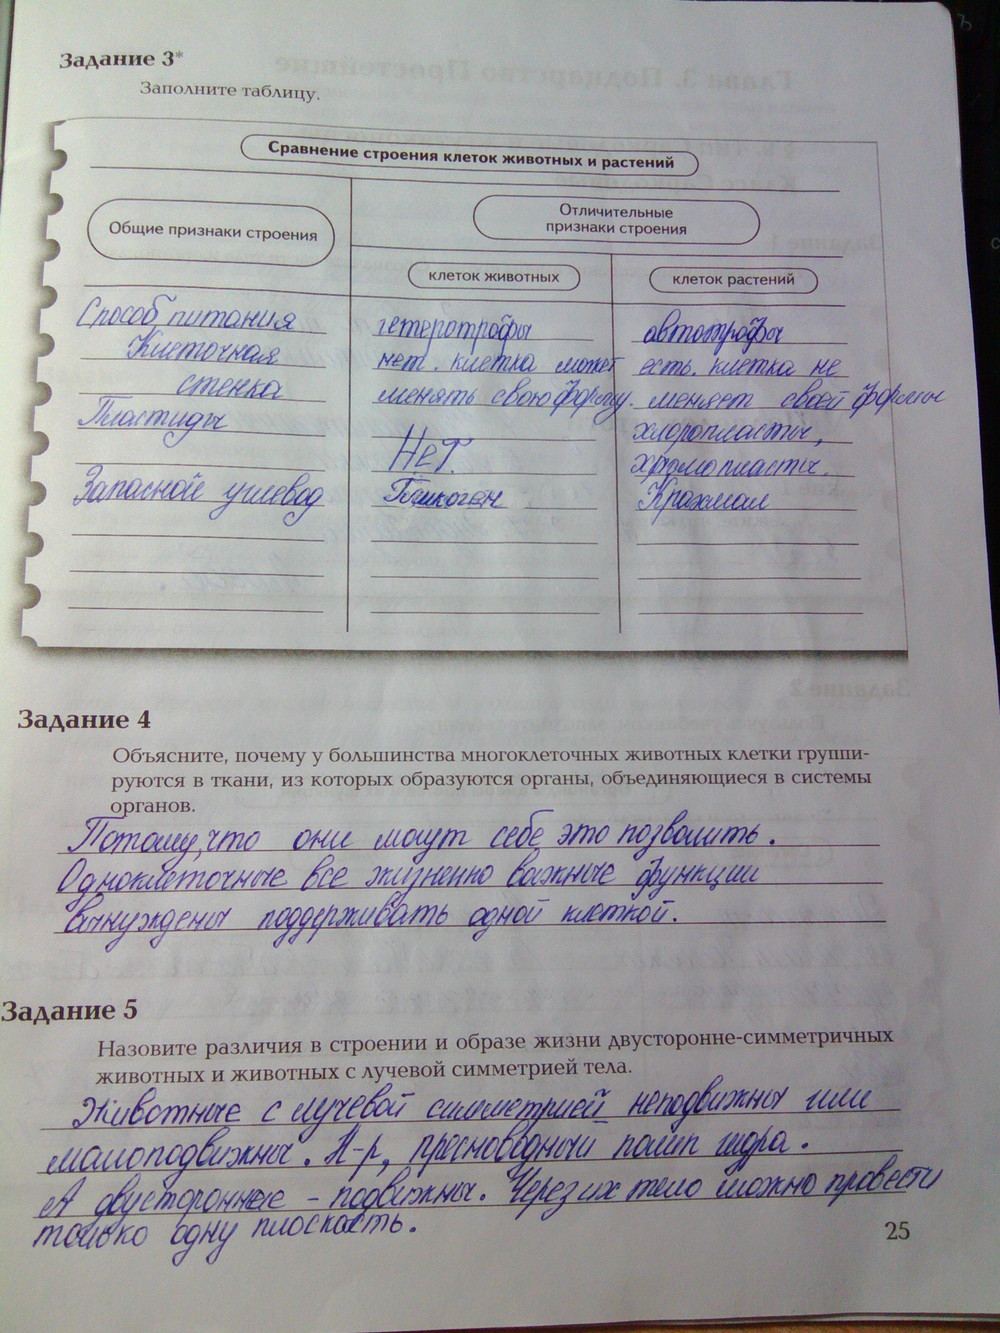 Задание 3*
Заполните таблицу.
Сравнение строения клеток животных и растений
Общие признаки строения
Отличительные
признаки строения
клеток животных
клеток растений
Способ питания гетеротрофы автотрофы
Клеточная нет. клетка может есть. клетка не
стенка менять свою форму. меняет своей формы
Пластиды хлоропласты,
Нет. хромопласты.
Запасной углевод Гликоген Крахмал
Задание 4
Объясните, почему у большинства многоклеточных животных клетки группи-
руются в ткани, из которых образуются органы, объединяющиеся в системы
органов.
Потому, что они могут себе это позволить.
Одноклеточные все жизненно важные функции
вынуждены поддерживать одной клеткой.
Задание 5
Назовите различия в строении и образе жизни двусторонне-симметричных
животных и животных с лучевой симметрией тела.
Животные с лучевой симметрией неподвижны или
малоподвижны. Н-р, пресноводный полип гидра.
А двусторонние - подвижны. Через их тело можно провести
только одну плоскость.
25